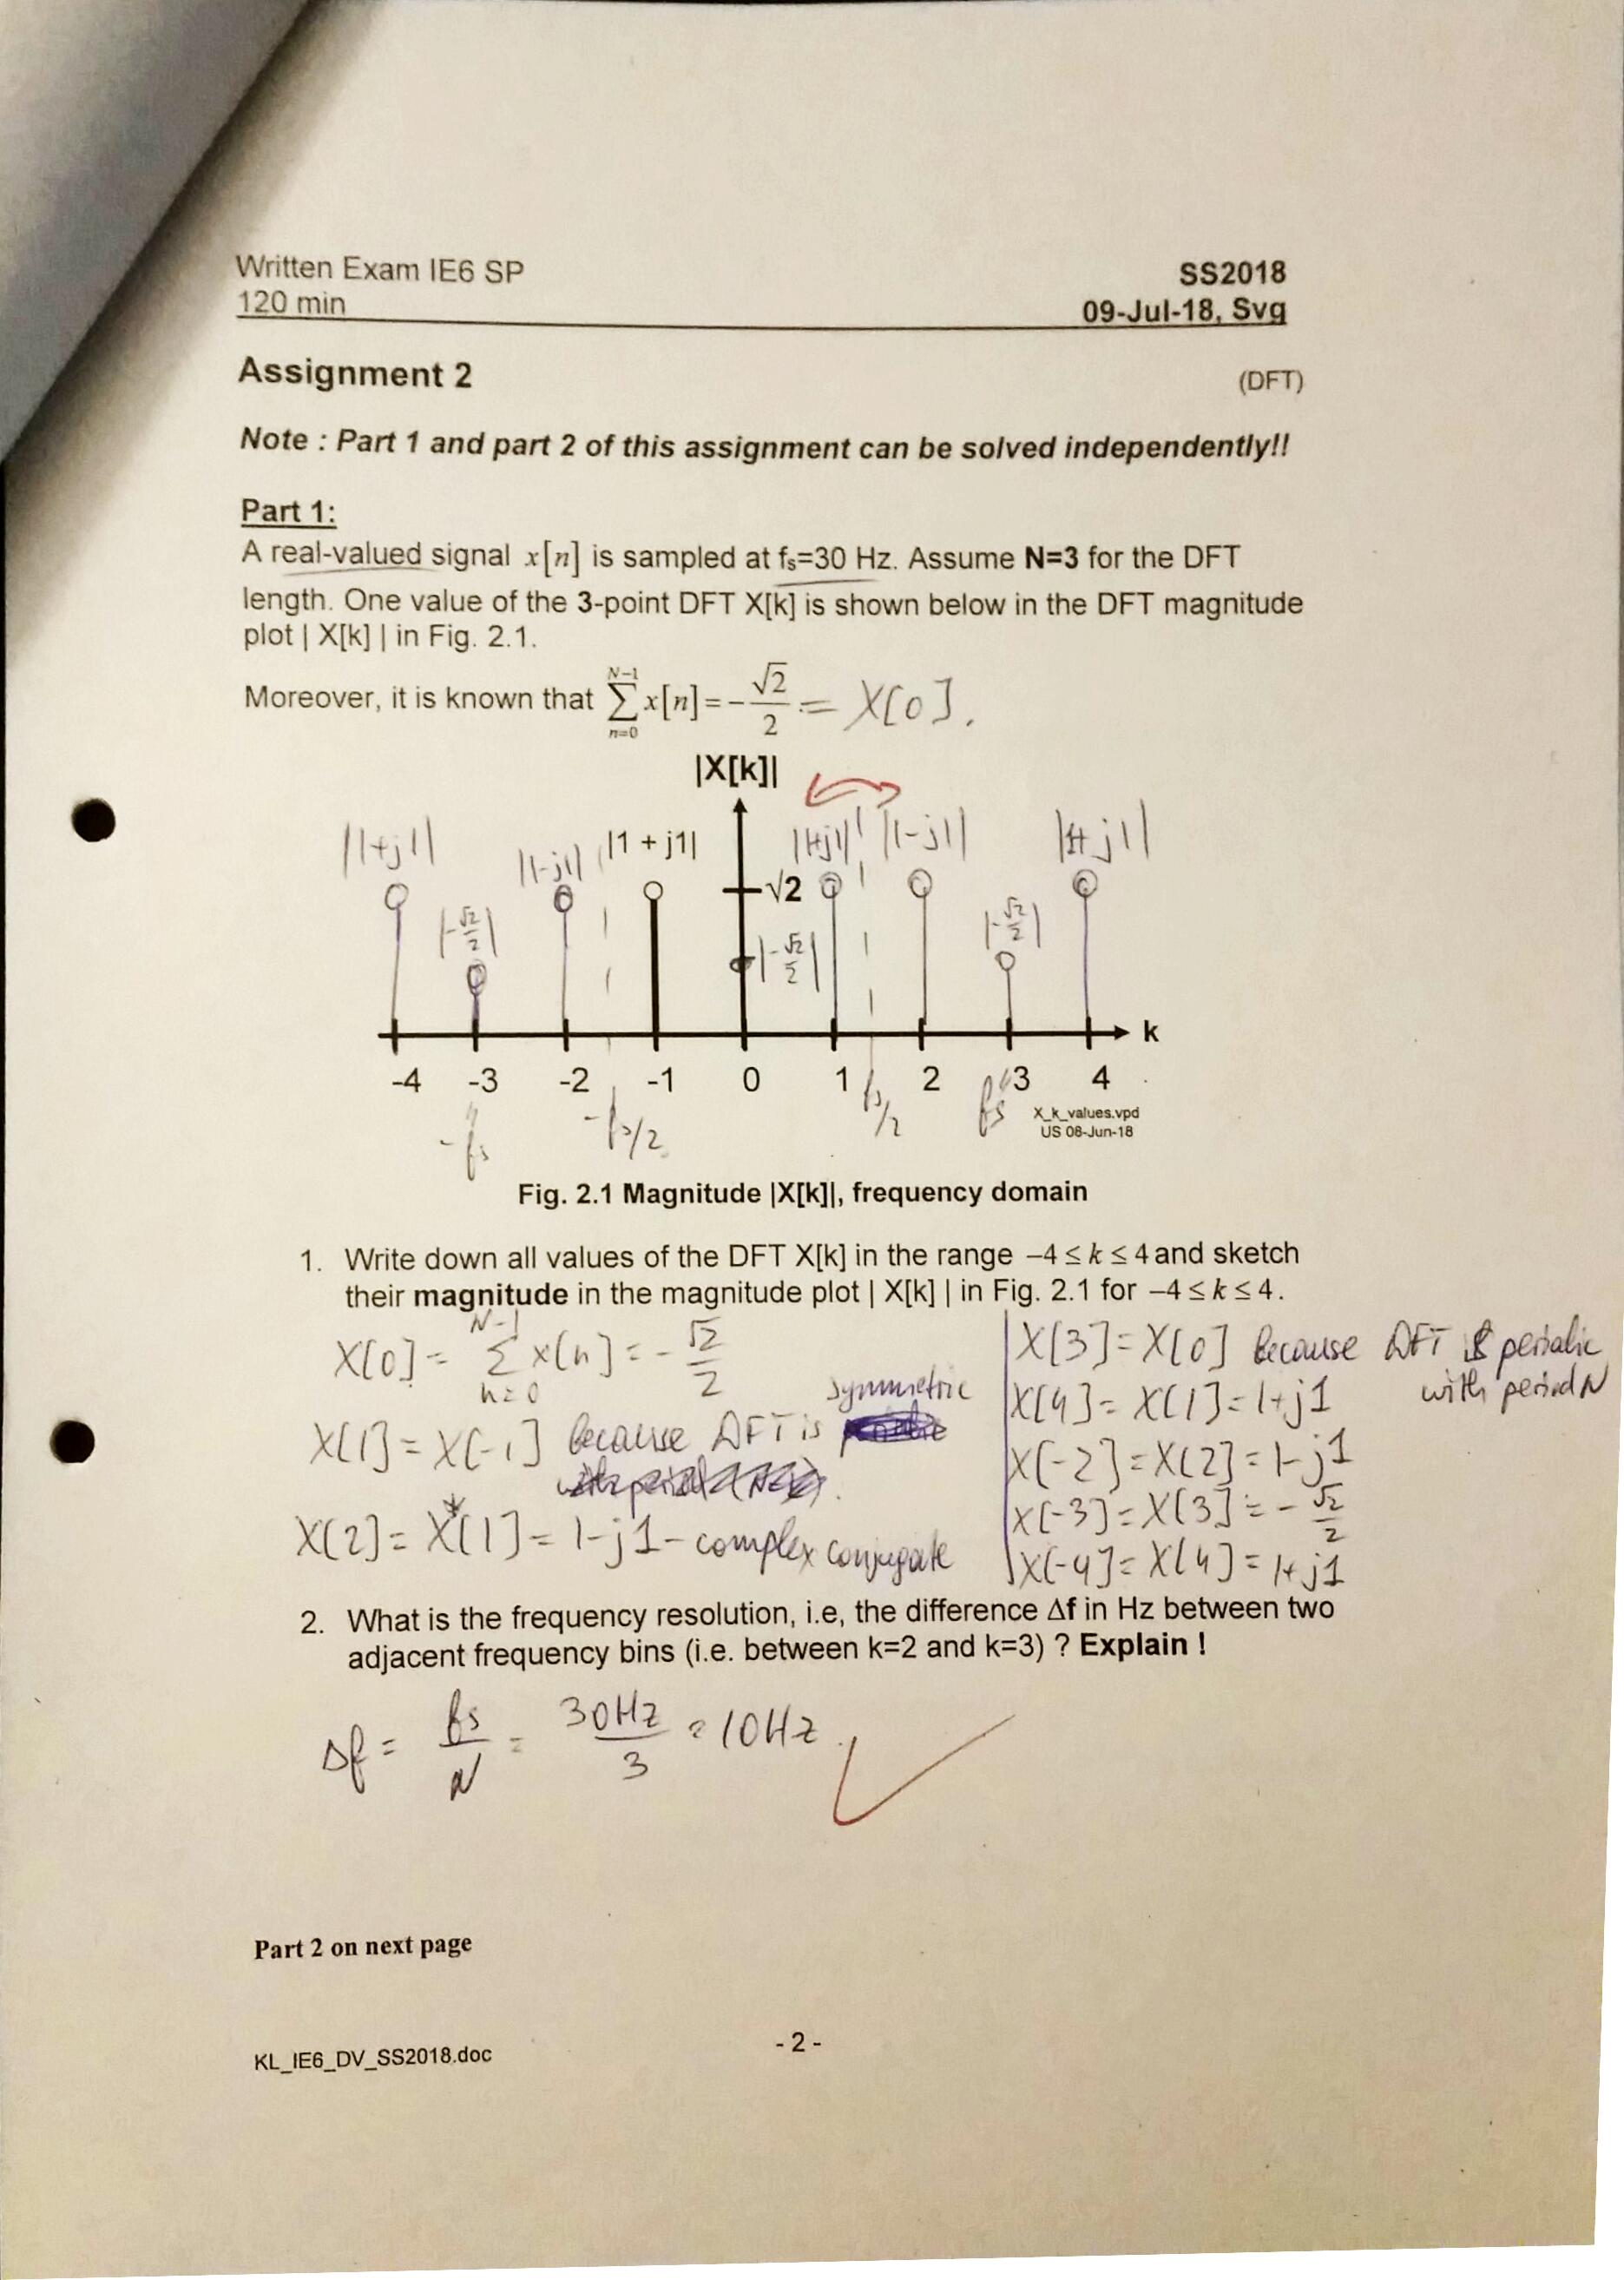 Written Exam IE6 SP
SS2018
120 min
09-Jul-18, Svg
Assignment 2
(DFT)
Note : Part 1 and part 2 of this assignment can be solved independently!!
Part 1:
A real-valued signal x[n] is sampled at fs=30 Hz. Assume N=3 for the DFT
length. One value of the 3-point DFT X[k] is shown below in the DFT magnitude
plot | X[k] | in Fig. 2.1.
Moreover, it is known that ∑_{n=0}^{N-1} x[n] = -√2/2 = X[0].
|X[k]|
|1+j1| |1-j1| |1 + j1| |1+j1| |1-j1| |1+j1|
√2
|-√2/2| |-√2/2| |-√2/2|
k
-4 -3 -2 -1 0 1 2 3 4
-fs -fs/2 fs/2 fs
X_k_values.vpd
US 08-Jun-18
Fig. 2.1 Magnitude |X[k]|, frequency domain
1. Write down all values of the DFT X[k] in the range −4 ≤ k ≤ 4 and sketch
their magnitude in the magnitude plot | X[k] | in Fig. 2.1 for −4 ≤ k ≤ 4.
X[0] = ∑_{n=0}^{N-1} x(n) = -√2/2
X[1] = X[-1] because DFT is symmetric
X[2] = X*[1] = 1-j1 - complex conjugate
X[3] = X[0] because DFT is periodic
with period N
X[4] = X[1] = 1+j1
X[-2] = X[2] = 1-j1
X[-3] = X[3] = -√2/2
X[-4] = X[4] = 1+j1
2. What is the frequency resolution, i.e, the difference Δf in Hz between two
adjacent frequency bins (i.e. between k=2 and k=3) ? Explain !
Δf = fs/N = 30Hz/3 = 10Hz
Part 2 on next page
KL_IE6_DV_SS2018.doc
- 2 -